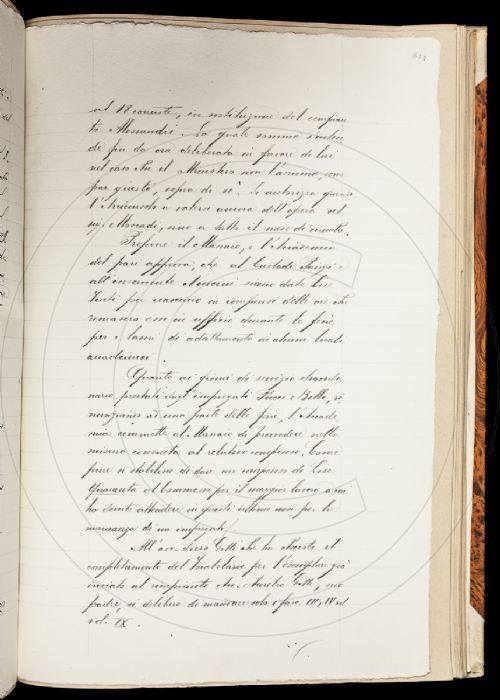 al 18 corrente, in sostituzione del compian
to Alessandri. La quale somma s'inten
de fin da ora deliberata in favore di lui
nel caso che il Ministero non l'assuma, com'
par giusto, sopra di sè. Si autorizza quindi
l'Arciconsolo a valersi ancora dell'opera del
sig. Mercadi, sino a tutto il mese di
Propone il Massaro, e l'Accademia
del pari approva, che al Custode
all'inserviente siano date Lire
Venti per ciascuno in compenso delle ore che
rimasero in ufficio durante le ferie
per i lavori di adattamento in alcuni locali
accademici.
Quanto ai giorni di servizio straordi
nario prestati dagl'impiegati Fucci e Bello,
rinunziando ad una parte delle ferie, l'Accade
mia commette al Massaro di provvedere nella
misura consueta al relativo compenso. Come
pure si stabilisce di dare un compenso di Lire
Quaranta al Commesso per il maggior lavoro a cui
ha dovuto attendere in questi ultimi mesi per la
mancanza di un impiegato.
All'acc. Piero Gotti che ha chiesto il
completamento del Vocabolario per l'esemplare già
inviato al compianto Acc. Aurelio Gotti, suo
padre, si delibera di mandare solo i fasc. III, IV del
vol. IX.